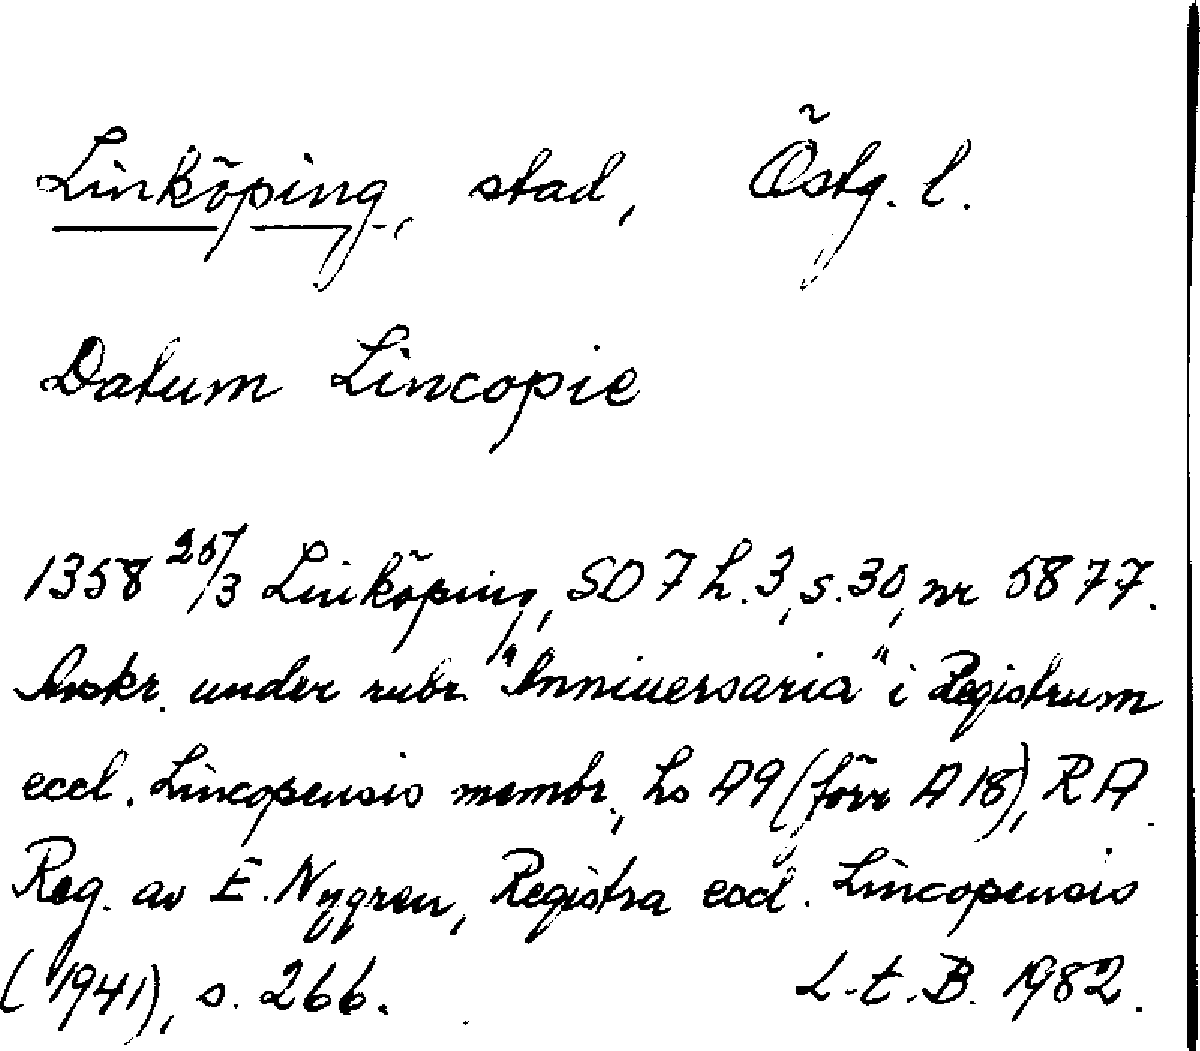 Linköping, stad, Östg. l.
Datum Lincopie
1358 25/3 Linköping, SD 7 h. 3, s. 30, nr 5877.
Avskr. under rubr. "Anniuersaria" i Registrum
eccl. Lincopensis membr., hs A9 (förr A 18), RA.
Reg. av E. Nygren, Registra eccl. Lincopensis
(1941), s. 266. L-t. B. 1982.